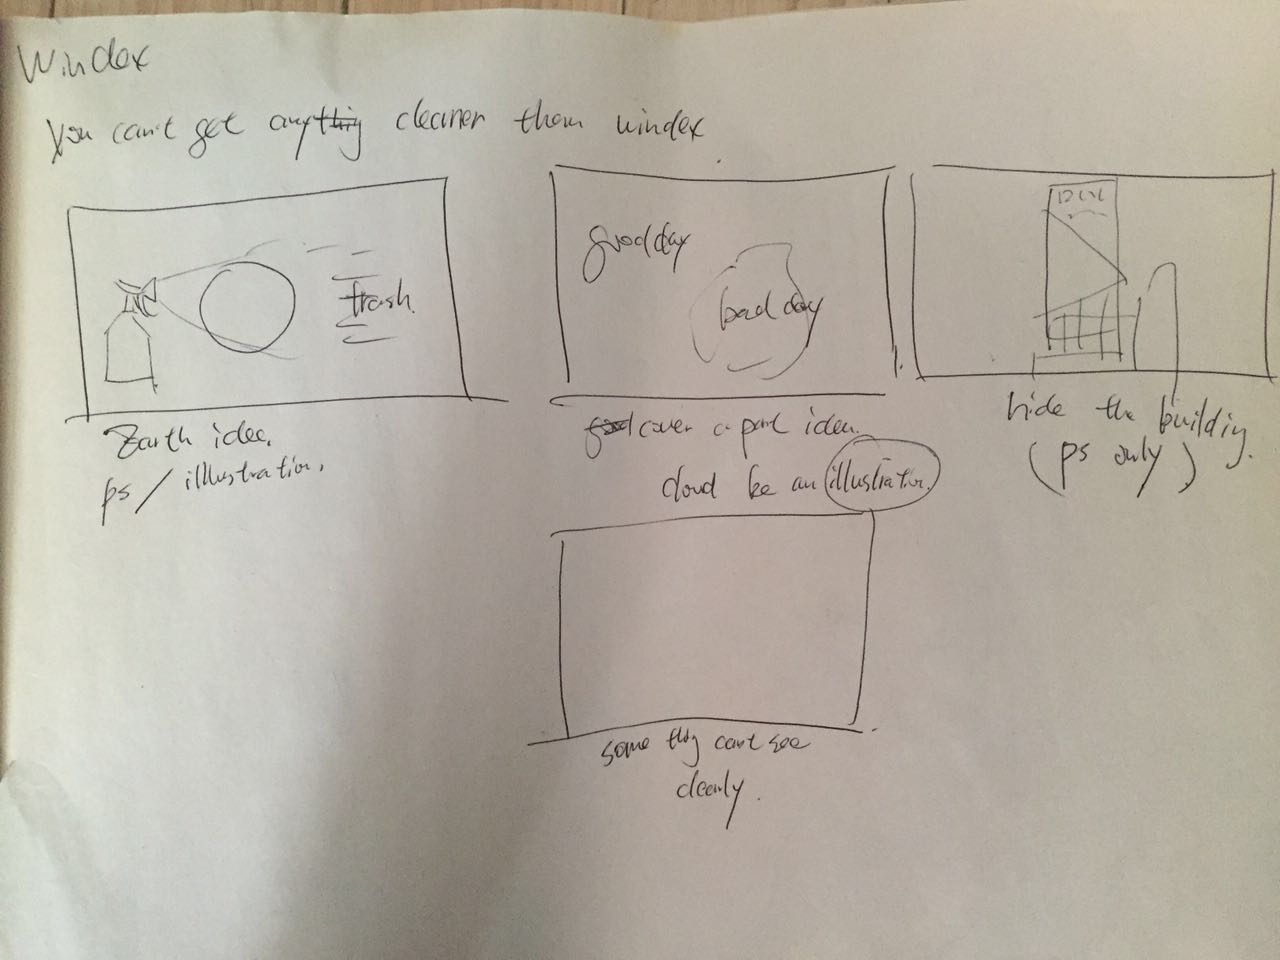 Windex
You can't get anything cleaner them windex
trash
good day
bad day
Earth idee.
ps / illlustration.
good cover a part idea.
cloud be an illustration.
hide the buildiy.
(ps only)
some thig can't see
clearly.